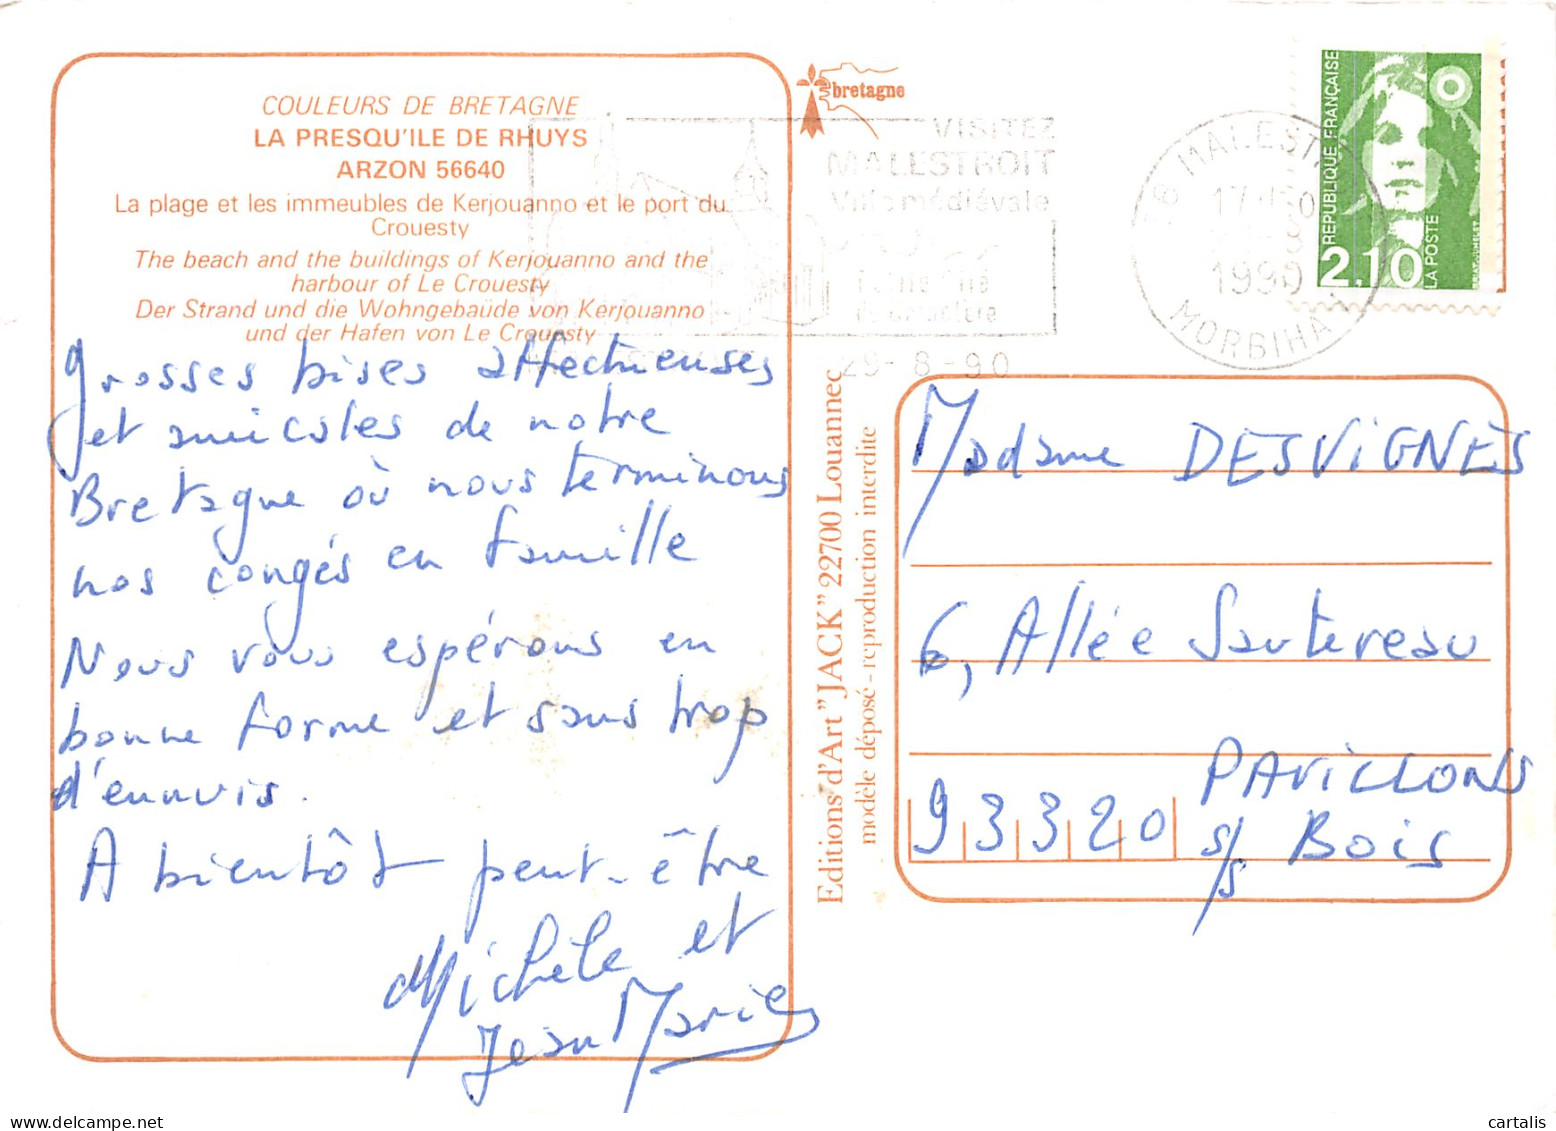 COULEURS DE BRETAGNE
LA PRESQU'ILE DE RHUYS
ARZON 56640
La plage et les immeubles de Kerjouanno et le port du
Crouesty
The beach and the buildings of Kerjouanno and the
harbour of Le Crouesty
Der Strand und die Wohngebaüde von Kerjouanno
und der Hafen von Le Crouesty
grosses bises affectueuses
et amicales de notre
Bretagne où nous terminons
nos congés en famille
Nous vous espérons en
bonne forme et sans trop
d'ennuis.
A bientôt peut-être
Michèle et
Jean Marie
bretagne
VISITEZ
MALESTROIT
Ville médiévale
de caractère
29-8-90
56 MALEST
17H
1990
MORBIHA
REPUBLIQUE FRANÇAISE
2,10
LA POSTE
Editions d'Art "JACK" 22700 Louannec
modèle déposé - reproduction interdite
Madame DESVIGNES
6, Allée Sautereau
93320 PAVILLONS
s/s Bois
cartalis